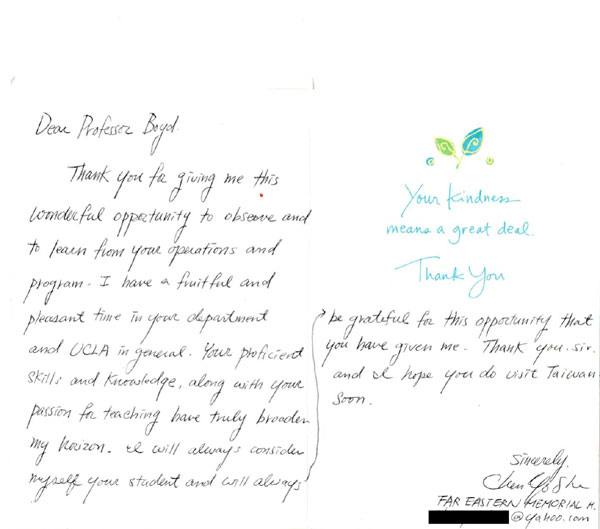 Dear Professor Boyd.
Thank you for giving me this
wonderful opportunity to observe and
to learn from your operations and
program. I have a fruitful and
pleasant time in your department
and UCLA in general. Your proficient
skills and knowledge, along with your
passion for teaching have truly broaden
my horizon. I will always consider
myself your student and will always
Your kindness
means a great deal.
Thank You
be grateful for this opportunity that
you have given me. Thank you. sir.
and I hope you do visit Taiwan
soon.
Sincerely.
FAR EASTERN MEMORIAL H.
@yahoo.com